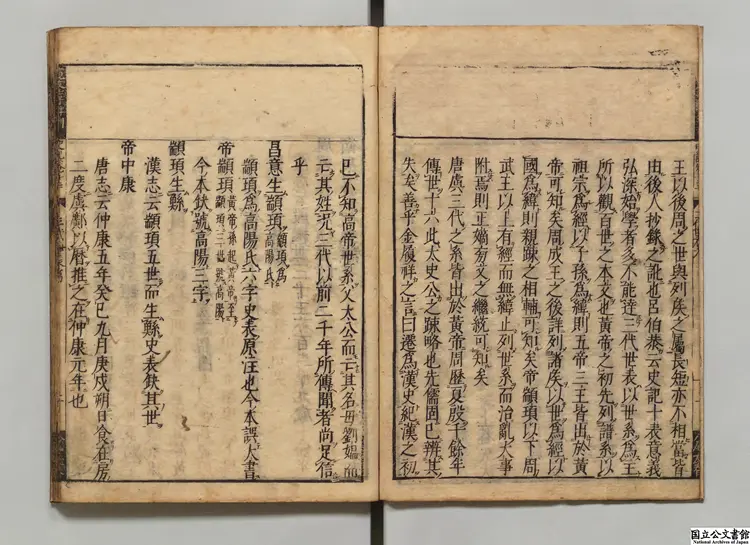 王以後周之世與列矣之屬長短亦不相當皆
由後人抄錄之訛也呂伯恭云史記十表意義
弘深始學者多不能達三代世表以世系爲主
所以觀百世之本支也黃帝之初先列譜系以
祖宗爲經以子孫爲緯則五帝三王皆出於黃
帝可知矣周成王之後詳列諸矣以世爲經以
國爲緯則親踈之相輔可知矣帝顓頊以下周
武王以上有經而無緯止列世系而治亂大事
附焉則正嫡旁文之繼統可知矣
唐虞三代之系皆出於黃帝周歷夏殷千餘年
傳世十六此太史公之踈略也先儒固已辨其
失矣善乎金履祥之言曰遷爲漢史紀漢之初
已不知高帝世系父太公而云其名母劉媼而
云其姓况三代以前二千年所傳聞者尚足信
乎
昌意生顓頊顓頊爲高陽氏
顓頊爲高陽氏六字史表原注也今本誤大書
帝顓頊黃帝孫起黃帝至顓頊三世號高陽
今本鈌號高陽三字
顓頊生鯀
漢志云顓頊五世而生鯀史表鈌其世
帝中康
唐志云仲康五年癸巳九月庚戌朔日食在房
二度虞鄺以曆推之在仲康元年也
国立公文書館
National Archives of Japan